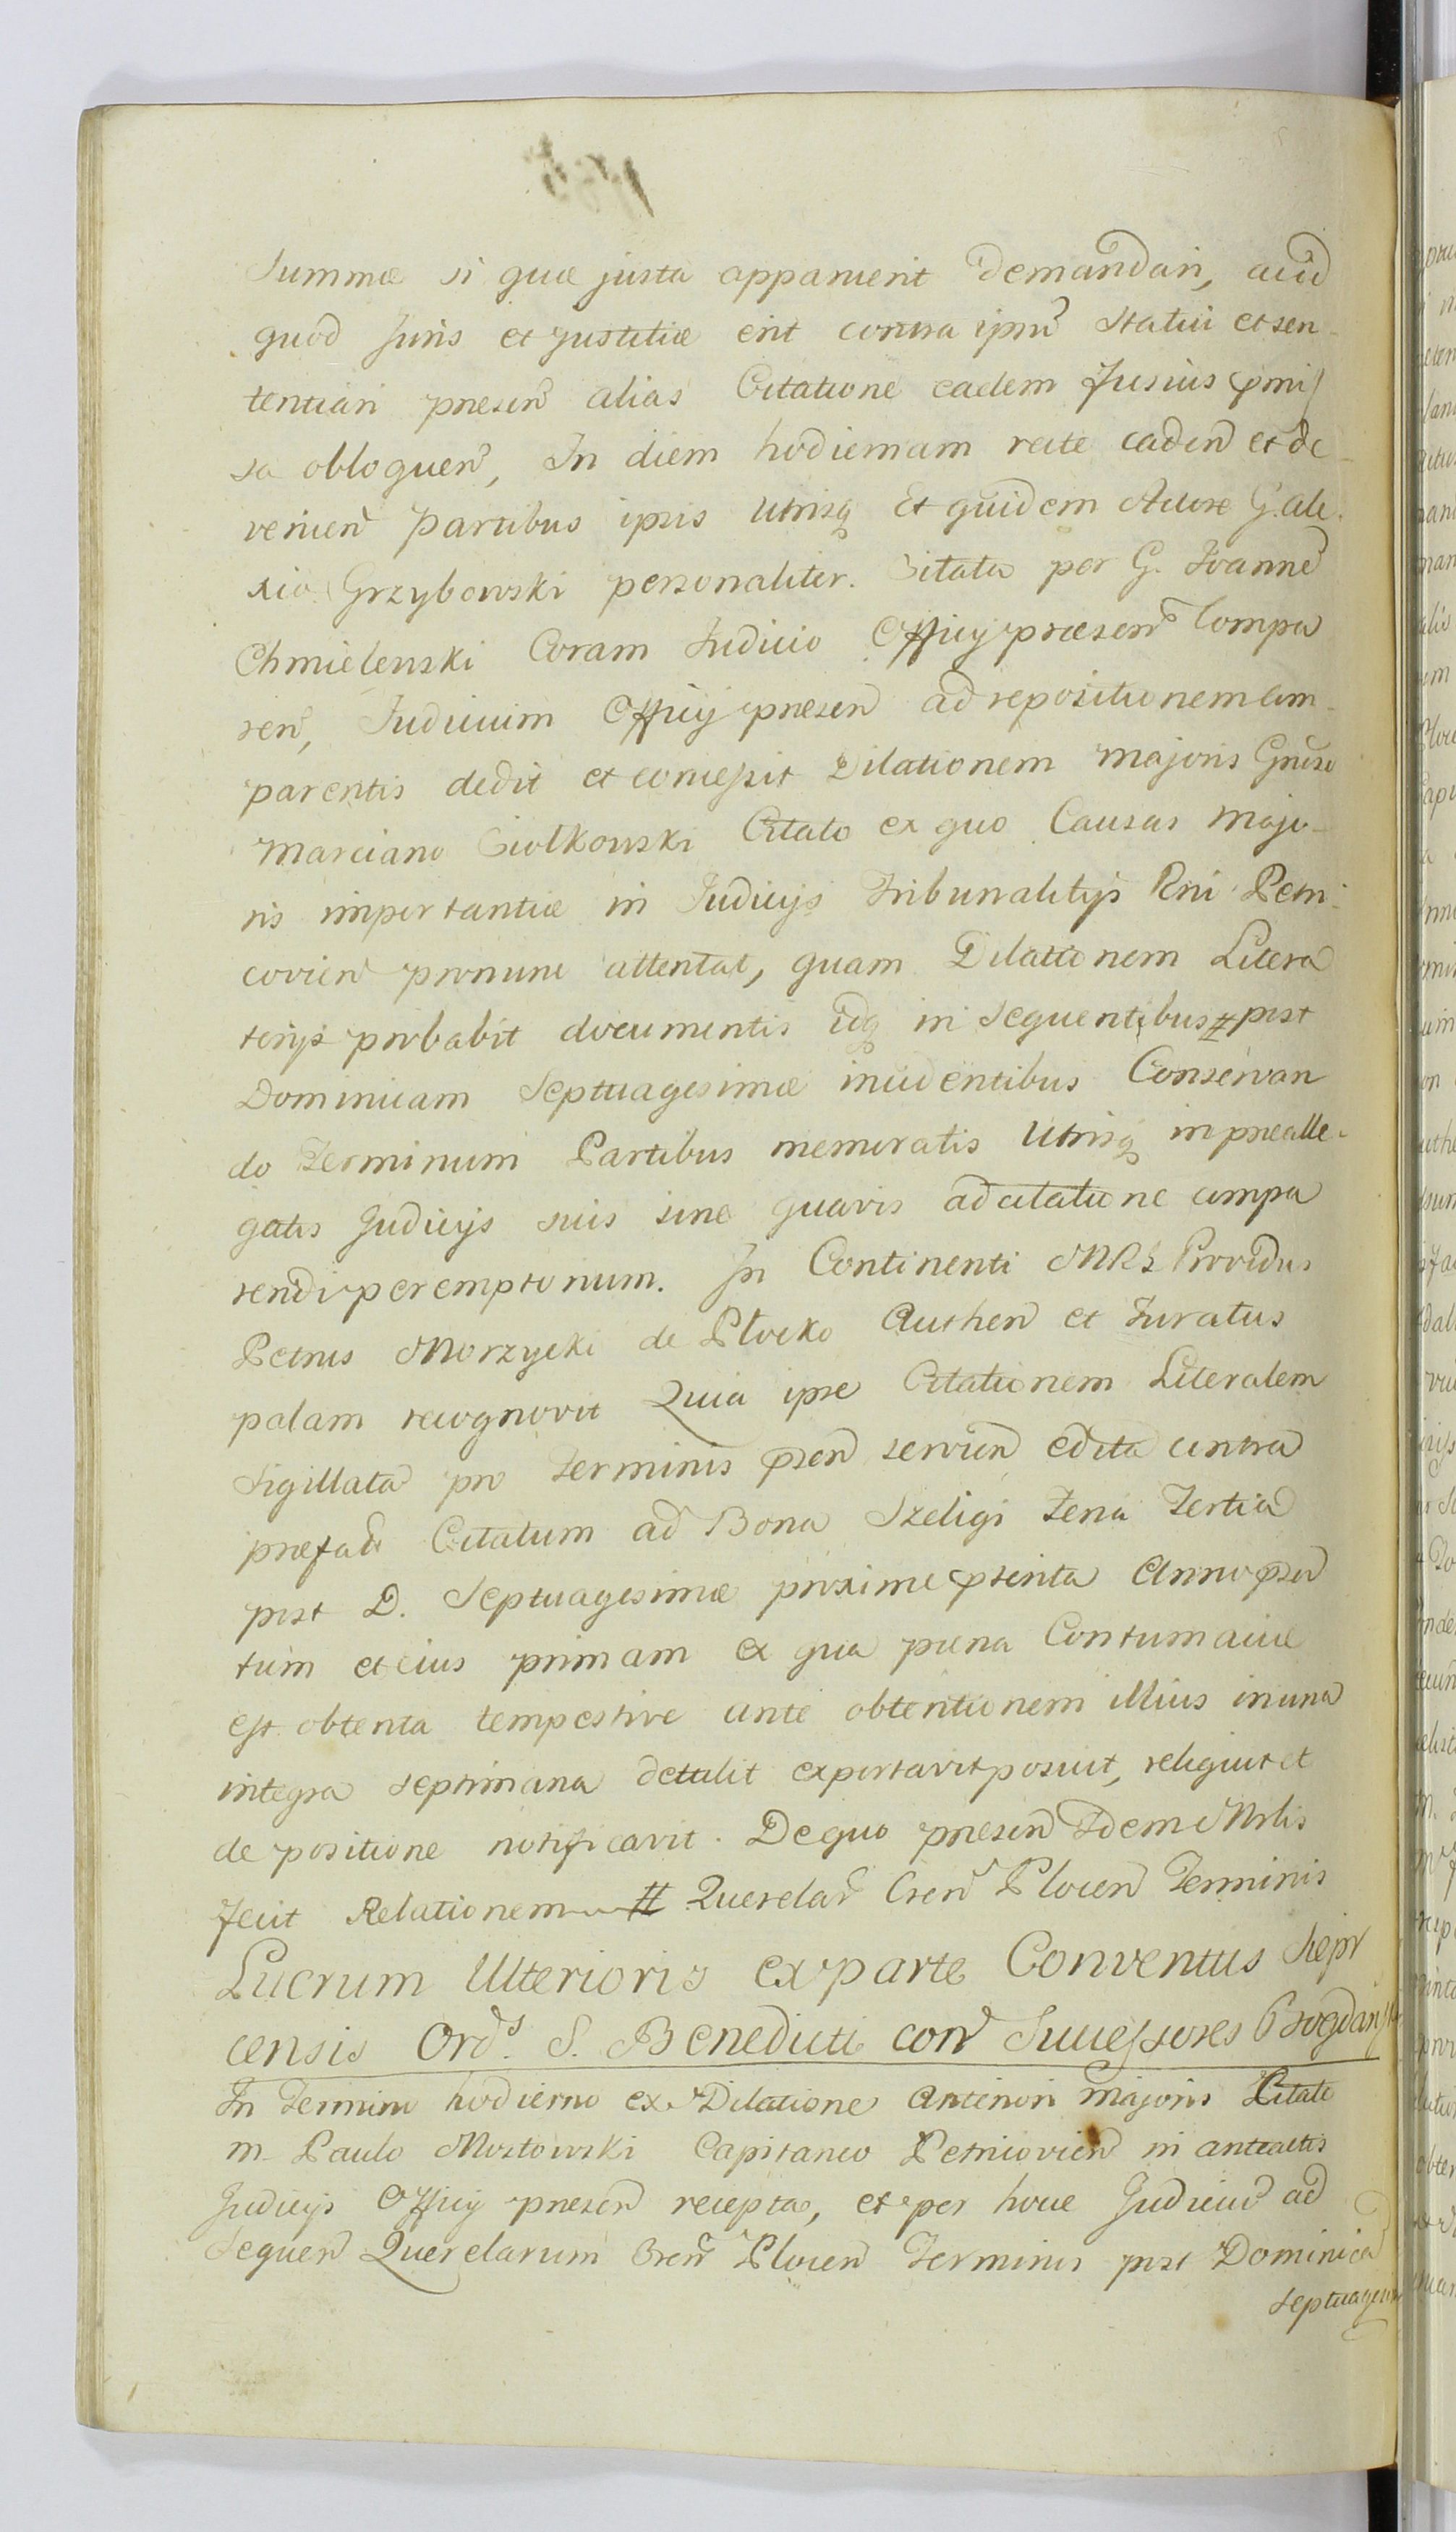 Summæ si quæ justa apparuerit demandari, aliud
quod Juris et Justitiæ erit contra ipsu statui et sen-
tentiari præsen alias Citatione eadem fusius pmis
sa obloquen, In diem hodiernam recte caden et de-
venien partibus ipsis Utrisq Et quidem Actore G. Ale-
xio Grzybowski personaliter. Citato per G. Joanne
Chmielewski Coram Judicio Officij præsen Compa
ren, Judicium Officij præsen ad repositionem com-
parentis dedit et concessit Dilationem majoris Gnoso
Marciano Ciołkowski Citato ex quo Causas majo-
ris importantiæ in Judicijs Tribunalitijs Rni Petri-
covien pronunc attentat, quam Dilationem Litera
torijs probabit documentis idq in sequentibus post
Dominicam Septuagesimæ incidentibus Conservan
do Terminum Partibus memoratis Utrisq in prealle-
gatis Judicijs suis sine quavis adcitatione compa
rendi peremptorium. In Continenti MRS Providus
Petrus Morzycki de Płocko Authen et Juratus
palam recognovit Quia ipse Citationem Literalem
Sigillata pro Terminis psen servien edita contra
præfat Citatum ad Bona Szeligi Feria Tertia
post D. Septuagesimæ proxime pterita Anno psen
tum et eius primam ex qua pœna Contumaciæ
est obtenta tempestive ante obtentionem illius in una
integra septimana detulit exportavit posuit, reliquit et
de positione notificavit. De quo præsen Idem Mrlis
fecit Relationem # Querelar Cren Plocen Terminis
Lucrum Ulterioris ex parte Conventus Siepr
censis Ord.s S. Benedicti con Successores Bogdańs
In Termino hodierno ex Dilatione Anteriori majoris Citato
M. Paulo Mostowski Capitaneo Petricovien in anteactis
Judicijs Officij præsen recepta, et per hocce Judiciu ad
Sequen Querelarum Cren Plocen Terminis post Dominica
Septuagesim